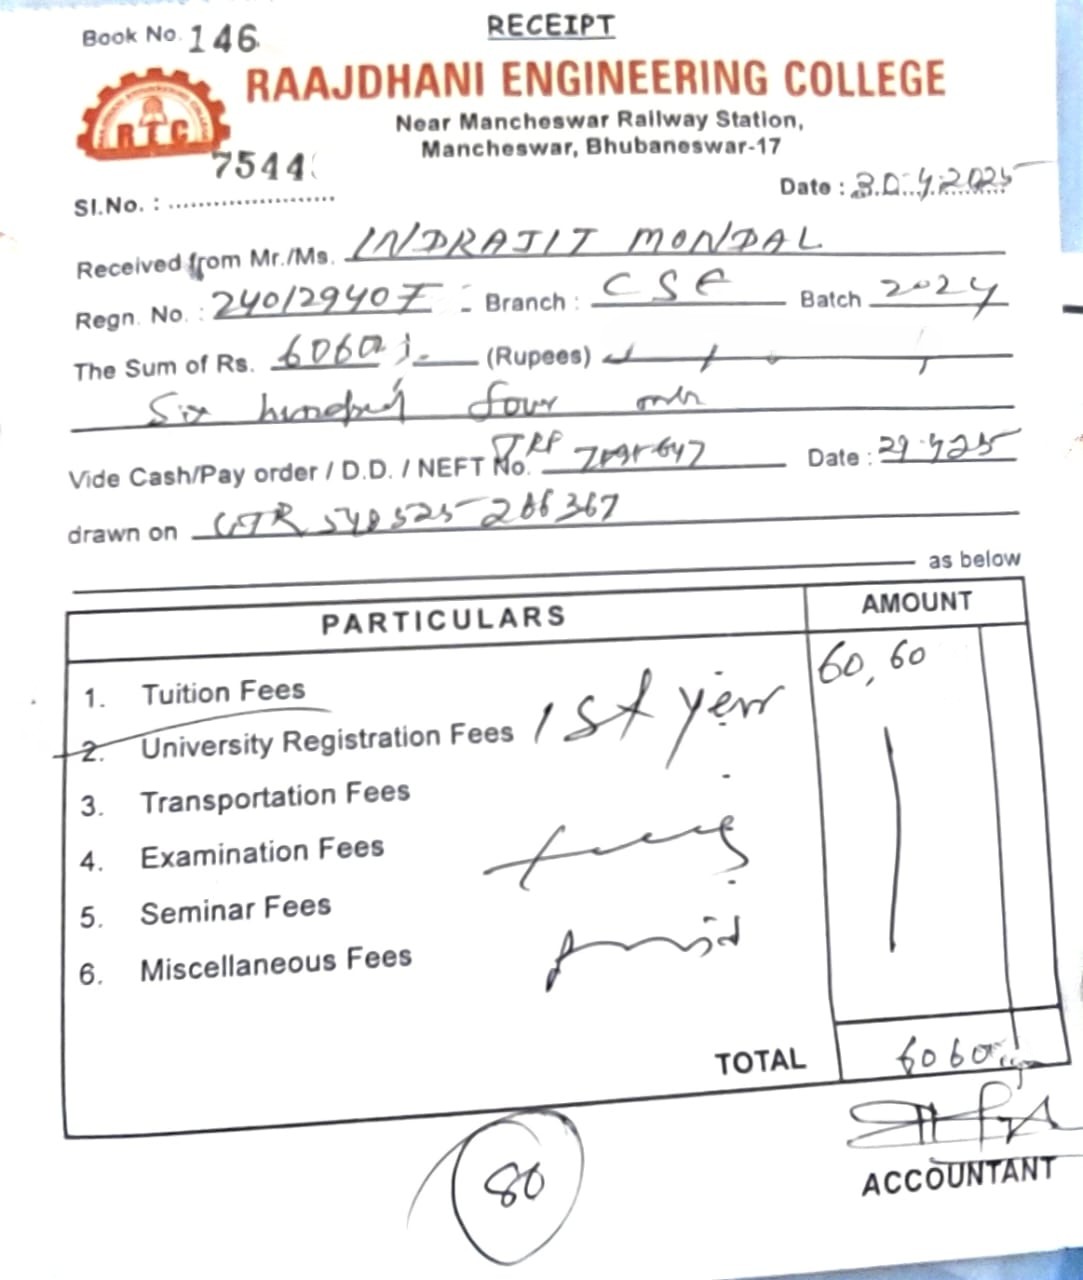 RECEIPT
Book No. 146
RAAJDHANI ENGINEERING COLLEGE
R.T.C
Near Mancheswar Railway Station,
Mancheswar, Bhubaneswar-17
7544
Sl.No. : ........................
Date : 30.4.2025
Received from Mr./Ms. INDRAJIT MONDAL
Regn. No. : 24012940 Branch : CSE Batch 2024
The Sum of Rs. 6060 (Rupees)
Six hundred four
Vide Cash/Pay order / D.D. / NEFT No. Date : 29.4.25
drawn on
as below
PARTICULARS AMOUNT
1. Tuition Fees 60,60
2. University Registration Fees 1st year
3. Transportation Fees
4. Examination Fees
5. Seminar Fees
6. Miscellaneous Fees
TOTAL 6060
80
ACCOUNTANT